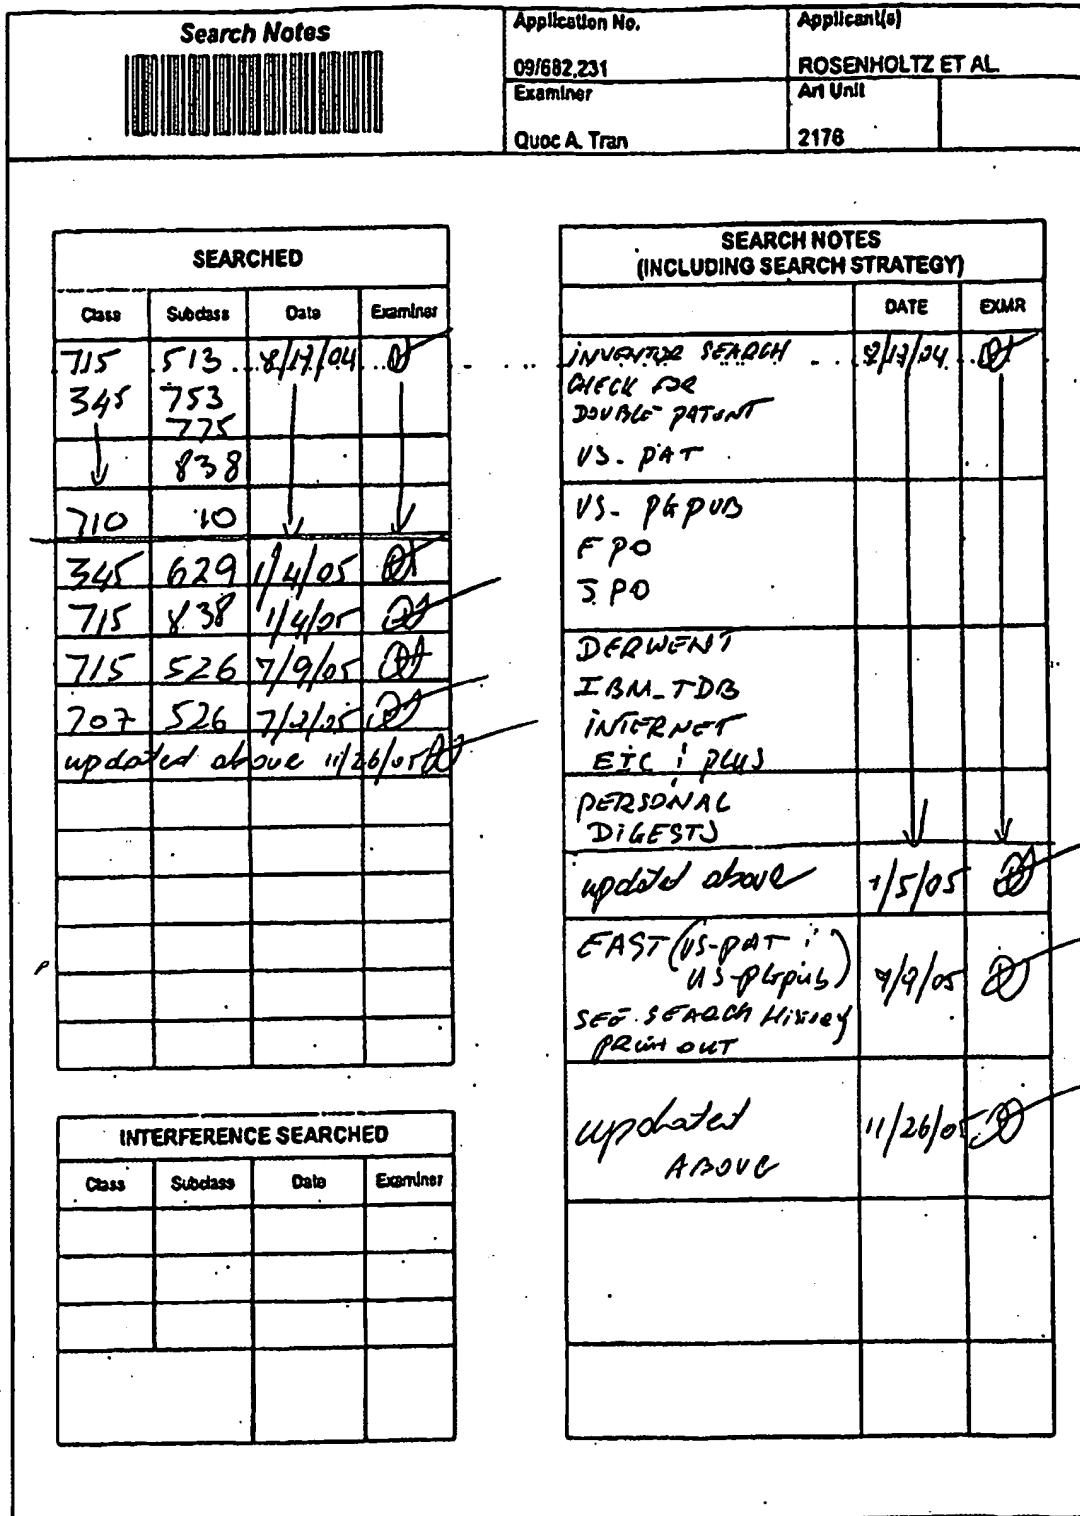 Search Notes
Application No.
09/682,231
Applicant(s)
ROSENHOLTZ ET AL.
Examiner
Quoc A. Tran
Art Unit
2176
SEARCHED
Class Subclass Date Examiner
715 513 8/17/04
345 753
775
838
710 10
345 629 1/4/05
715 838 1/4/05
715 526 7/9/05
707 526 7/9/05
updated above 11/26/05
INTERFERENCE SEARCHED
Class Subclass Date Examiner
SEARCH NOTES
(INCLUDING SEARCH STRATEGY)
DATE EXMR
INVENTOR SEARCH 8/17/04
CHECK FOR
DOUBLE PATENT
US-PAT
US-PGPUB
EPO
JPO
DERWENT
IBM_TDB
INTERNET
ETC; PLUS
PERSONAL
DIGESTS
updated above 1/5/05
EAST (US-PAT;
US-PGpub) 7/9/05
SEE SEARCH History
PRINT OUT
updated
ABOVE 11/26/05